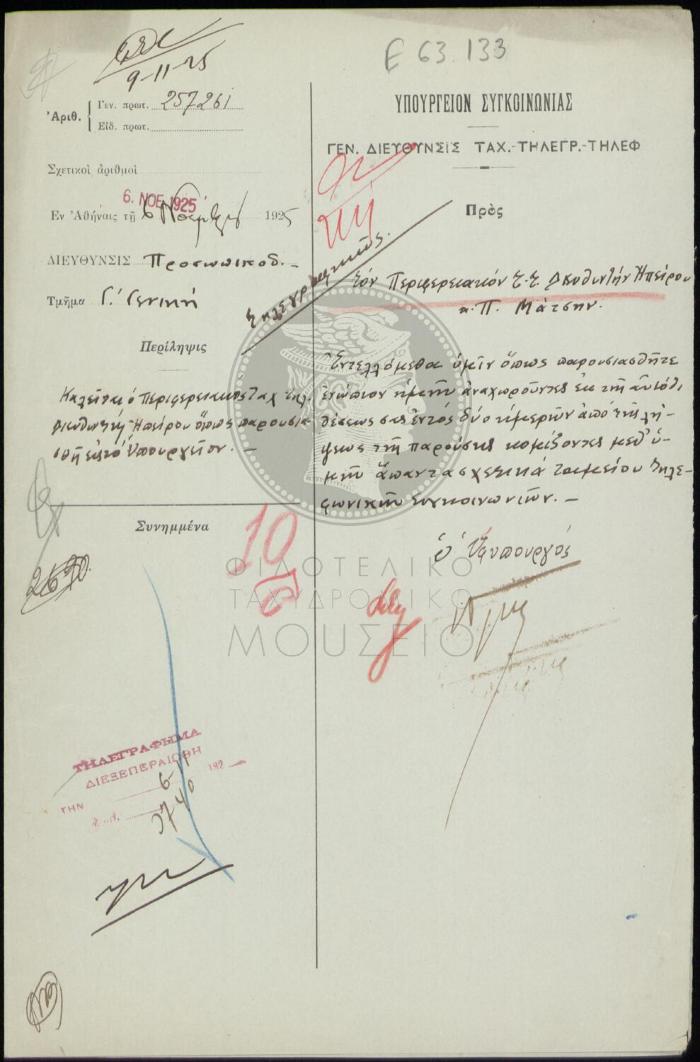 Ε 63.133
9-11-25
Ἀριθ. Γεν. πρωτ. 257261
Εἰδ. πρωτ.
Σχετικοὶ ἀριθμοὶ
6. ΝΟΕ 1925
Ἐν Ἀθήναις τῇ 6 Νοεμβρίου 1925
ΔΙΕΥΘΥΝΣΙΣ Προσωπικοῦ.–
Τμῆμα Γ! Γενική
Περίληψις
Καλεῖται ὁ Περιφερειακὸς Ταχ. Τηλ.
Διευθυντὴς Ἠπείρου ὅπως παρουσια-
σθῇ εἰς τὸ Ὑπουργεῖον.–
Συνημμένα
2690
ΤΗΛΕΓΡΑΦΗΜΑ
ΔΙΕΞΕΠΕΡΑΙΩΘΗ
ΤΗΝ 6 11 192
ΥΠΟΥΡΓΕΙΟΝ ΣΥΓΚΟΙΝΩΝΙΑΣ
ΓΕΝ. ΔΙΕΥΘΥΝΣΙΣ ΤΑΧ.-ΤΗΛΕΓΡ.-ΤΗΛΕΦ
Πρὸς
Τηλεγραφικῶς.
Τὸν Περιφερειακὸν Τ.Τ. Διευθυντὴν Ἠπείρου
κ. Π. Μάτσην.
Ἐντελλόμεθα ὑμῖν ὅπως παρουσιασθῆτε
ἐνώπιον ἡμῶν ἀναχωροῦντες ἐκ τῆς αὐτόθι
θέσεως σας ἐντὸς δύο ἡμερῶν ἀπὸ τῆς λή-
ψεως τῆς παρούσης κομίζοντες μεθ' ὑ-
μῶν ἅπαντα σχετικὰ ταμείου τηλε-
φωνικῶν συγκοινωνιῶν.–
ὁ Ὑπουργός
10
ΦΙΛΟΤΕΛΙΚΟ
ΤΑΧΥΔΡΟΜΙΚΟ
ΜΟΥΣΕΙΟ